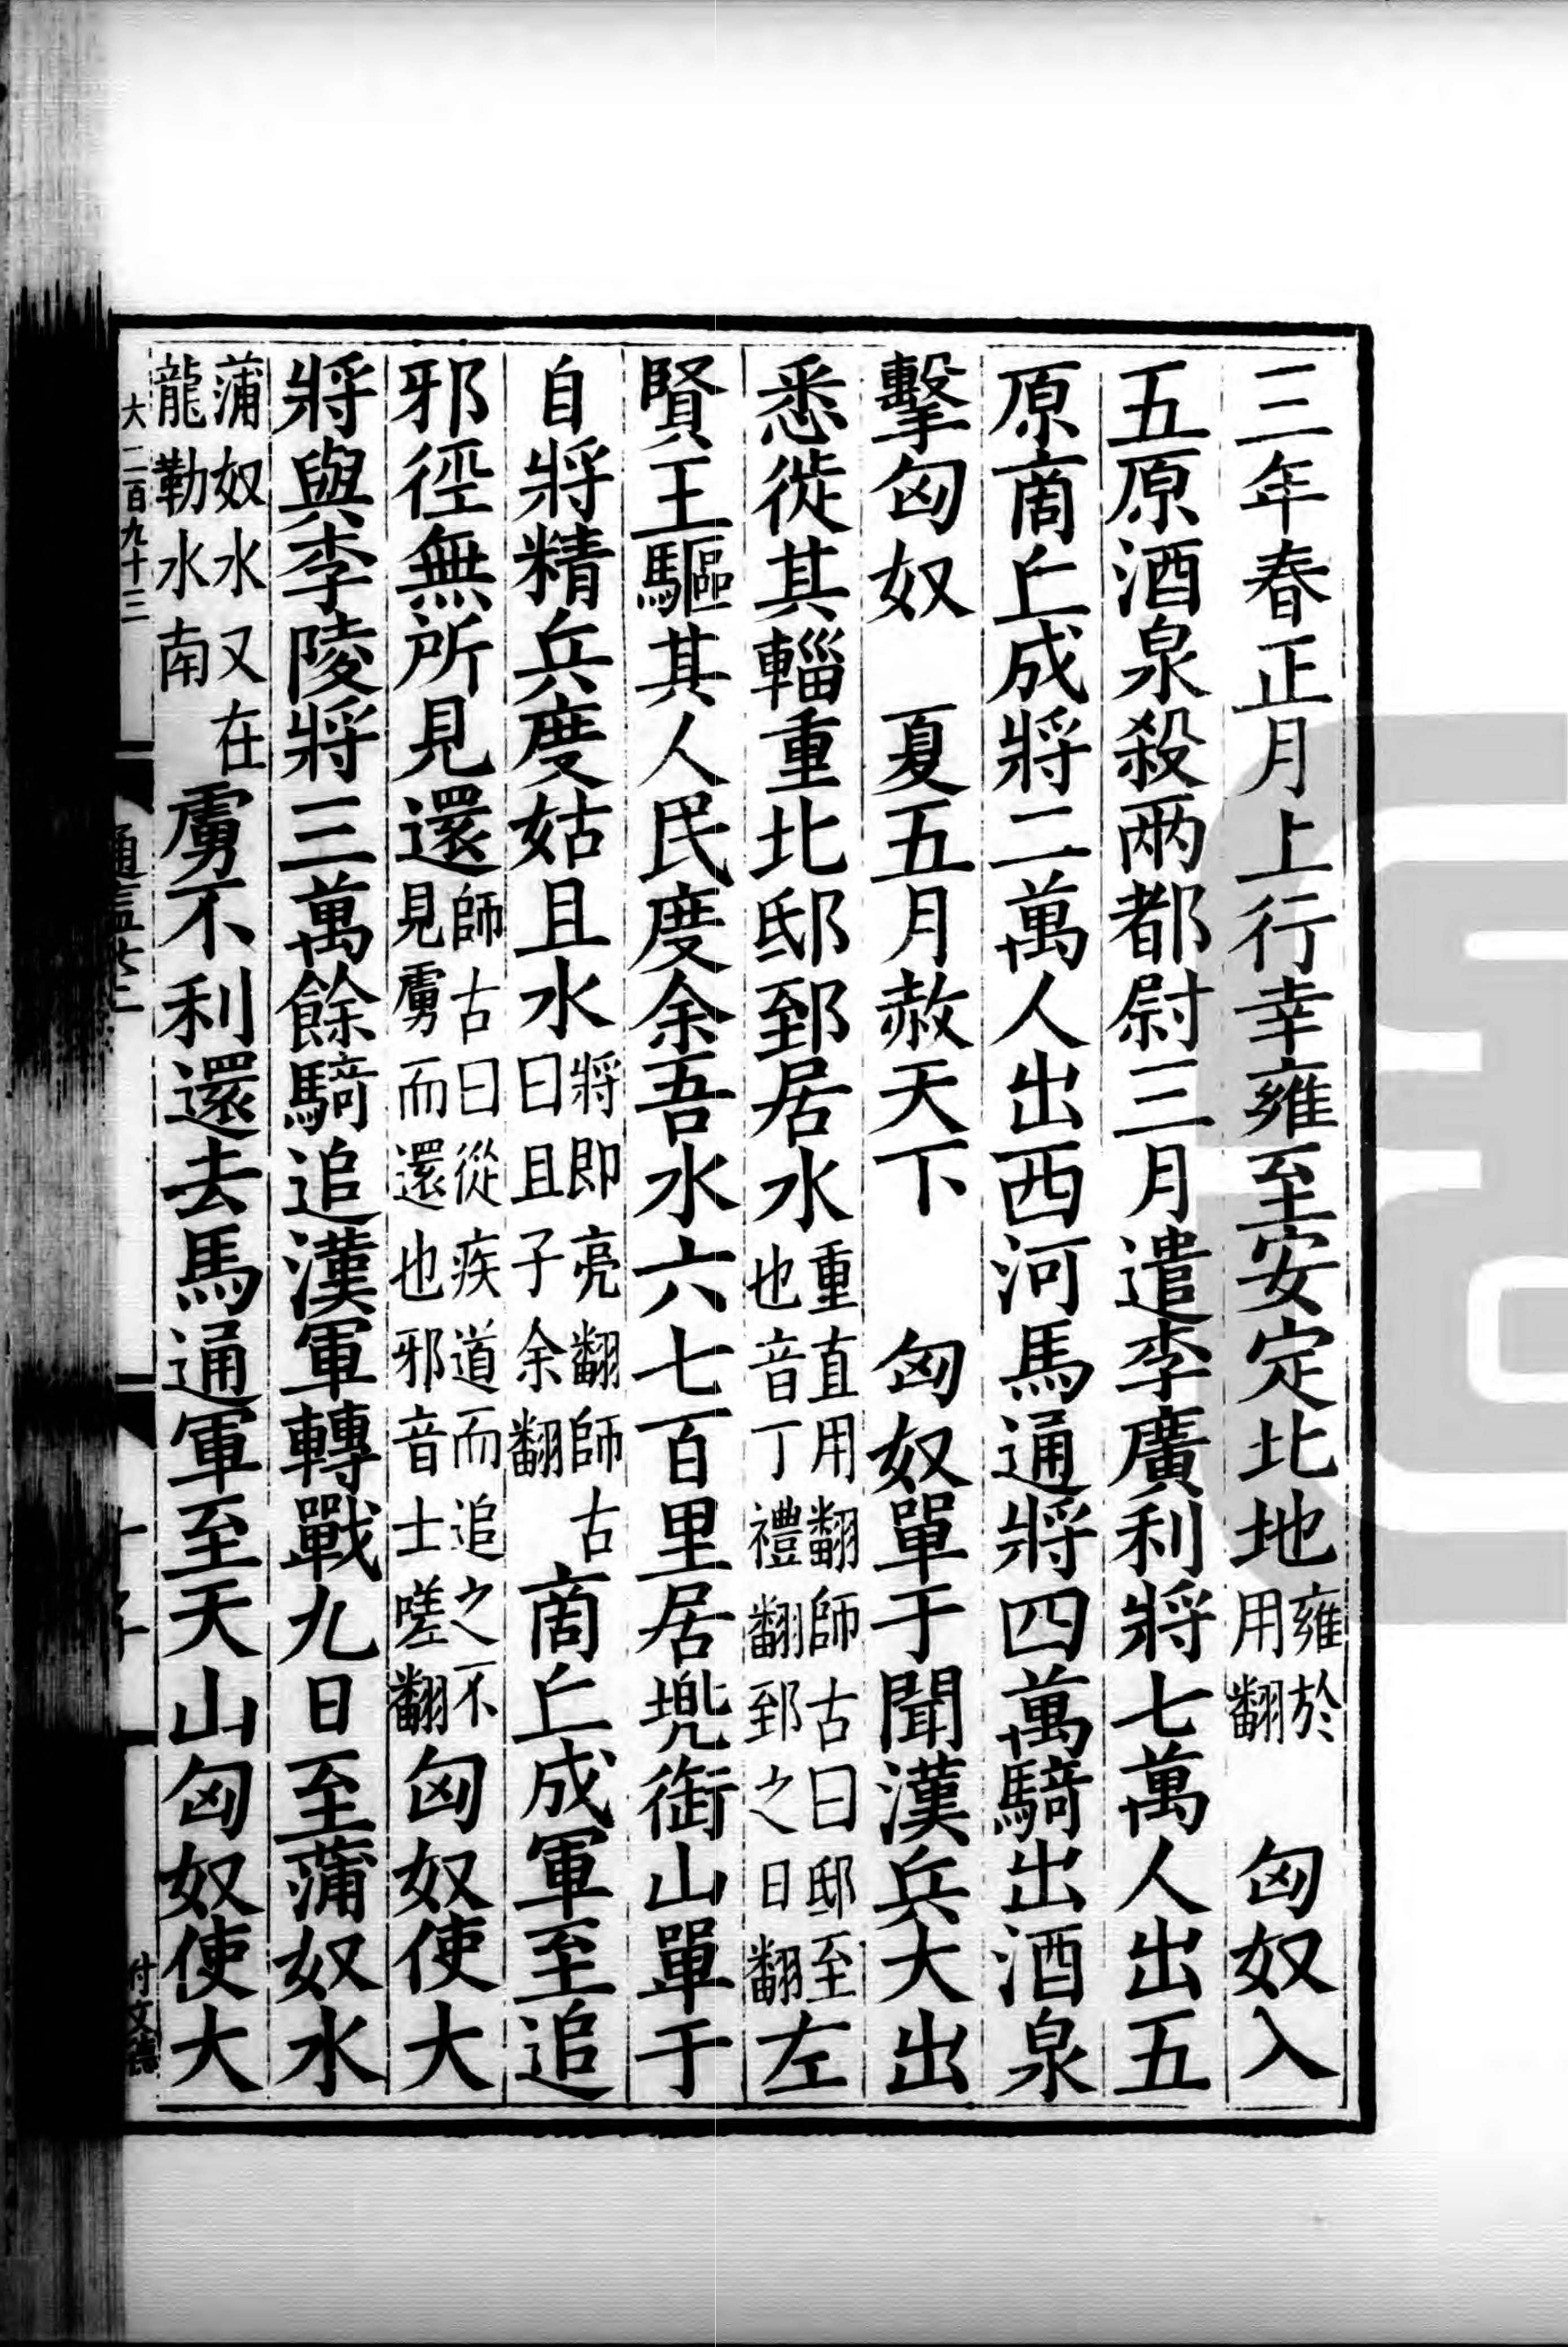 三年春正月上行幸雍至安定北地雍於用翻　匈奴入
五原酒泉殺兩都尉三月遣李廣利將七萬人出五
原商丘成將二萬人出西河馬通將四萬騎出酒泉
擊匈奴　夏五月赦天下　匈奴單于聞漢兵大出
悉徙其輜重北邸郅居水重直用翻師古曰邸至也音丁禮翻郅之日翻左
賢王驅其人民度余吾水六七百里居兠銜山單于
自將精兵度姑且水將即亮翻師古曰且子余翻商丘成軍至追
邪徑無所見還師古曰從疾道而追之不見虜而還也邪音士嗟翻匈奴使大
將與李陵將三萬餘騎追漢軍轉戰九日至蒲奴水
蒲奴水又在龍勒水南虜不利還去馬通軍至天山匈奴使大
大二百九十三
付文德